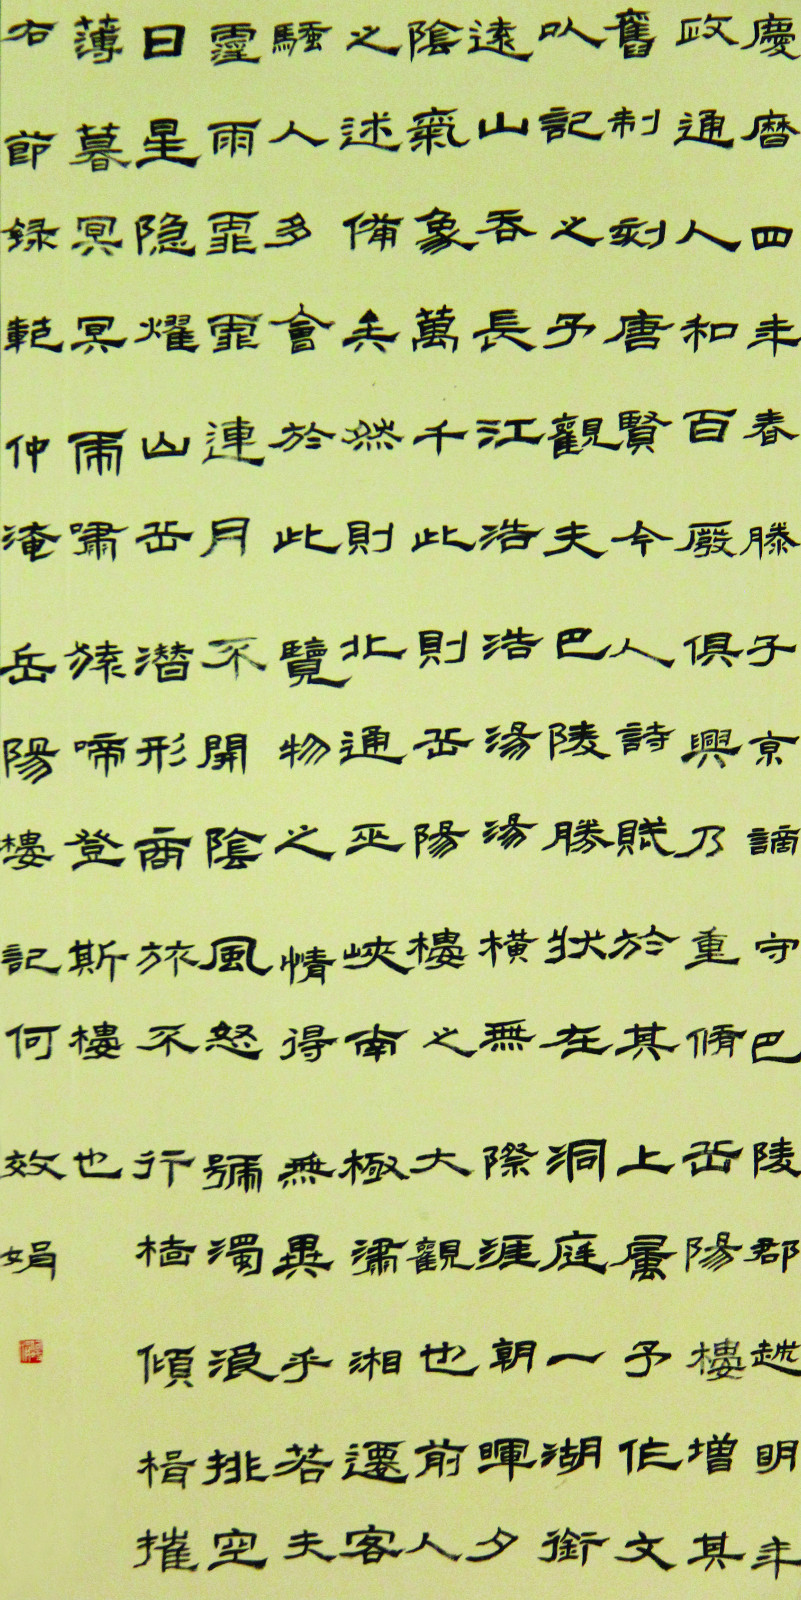 慶曆四年春滕子京謫守巴陵郡越明年
政通人和百廢俱興乃重脩岳陽樓增其
舊制刻唐賢今人詩賦於其上屬予作文
以記之予觀夫巴陵勝狀在洞庭一湖銜
遠山吞長江浩浩湯湯橫無際涯朝暉夕
陰氣象萬千此則岳陽樓之大觀也前人
之述備矣然則北通巫峽南極瀟湘遷客
騷人多會於此覽物之情得無異乎若夫
霪雨霏霏連月不開陰風怒號濁浪排空
日星隐燿山岳潜形商旅不行檣傾楫摧
薄暮冥冥虎嘯猿啼登斯樓也
右節録範仲淹岳陽樓記何效娟